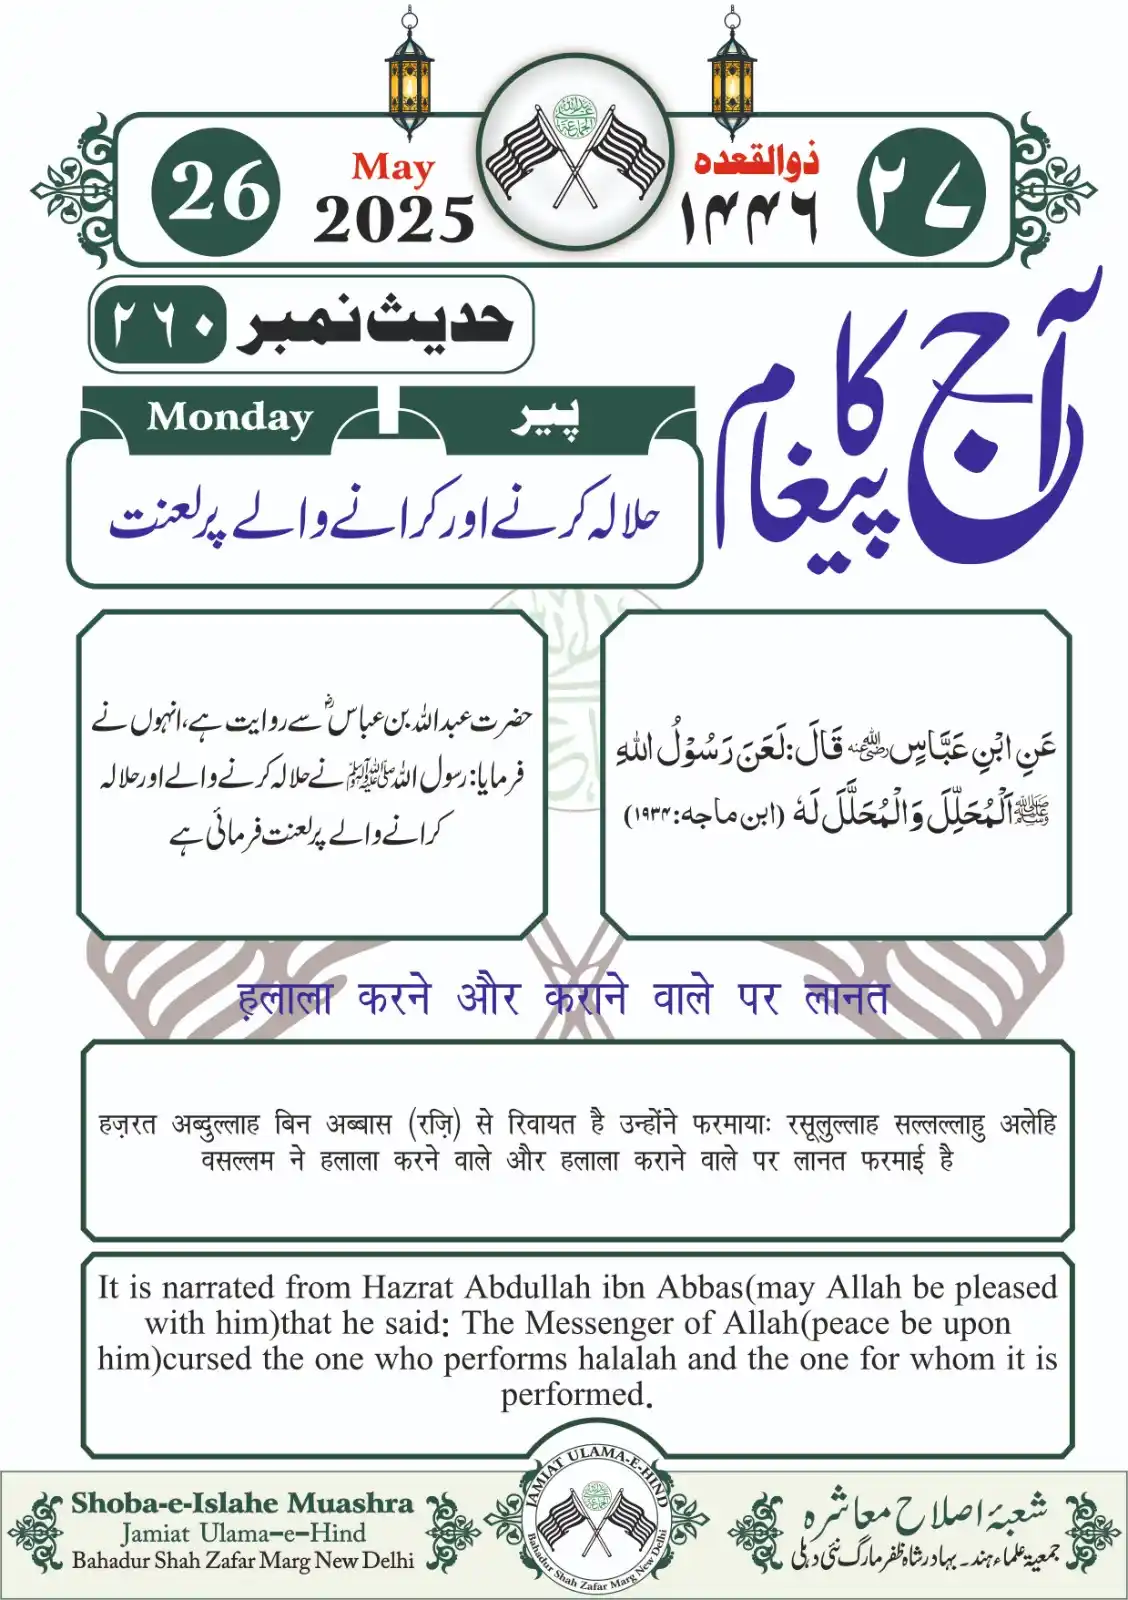 26
May
2025
ذوالقعدہ
۱۴۴۶
۲۷
حدیث نمبر ۲۶۰
آج کا پیغام
Monday
پیر
حلالہ کرنے اور کرانے والے پر لعنت
عَنِ ابْنِ عَبَّاسٍ رضی اللہ عنہ قَالَ: لَعَنَ رَسُوْلُ اللهِ
ﷺ اَلْمُحَلِّلَ وَالْمُحَلَّلَ لَهٗ (ابن ماجه: ۱۹۳۴)
حضرت عبداللہ بن عباسؓ سے روایت ہے، انہوں نے
فرمایا: رسول اللہ ﷺ نے حلالہ کرنے والے اور حلالہ
کرانے والے پر لعنت فرمائی ہے
हलाला करने और कराने वाले पर लानत
हज़रत अब्दुल्लाह बिन अब्बास (रज़ि) से रिवायत है उन्होंने फरमायाः रसूलुल्लाह सल्लल्लाहु अलेहि
वसल्लम ने हलाला करने वाले और हलाला कराने वाले पर लानत फरमाई है
It is narrated from Hazrat Abdullah ibn Abbas(may Allah be pleased
with him)that he said: The Messenger of Allah(peace be upon
him)cursed the one who performs halalah and the one for whom it is
performed.
Shoba-e-Islahe Muashra
Jamiat Ulama-e-Hind
Bahadur Shah Zafar Marg New Delhi
JAMIAT ULAMA-E-HIND
Bahadur Shah Zafar Marg New Delhi
شعبۂ اصلاح معاشرہ
جمعیۃ علماء ہند۔ بہادر شاہ ظفر مارگ نئی دہلی